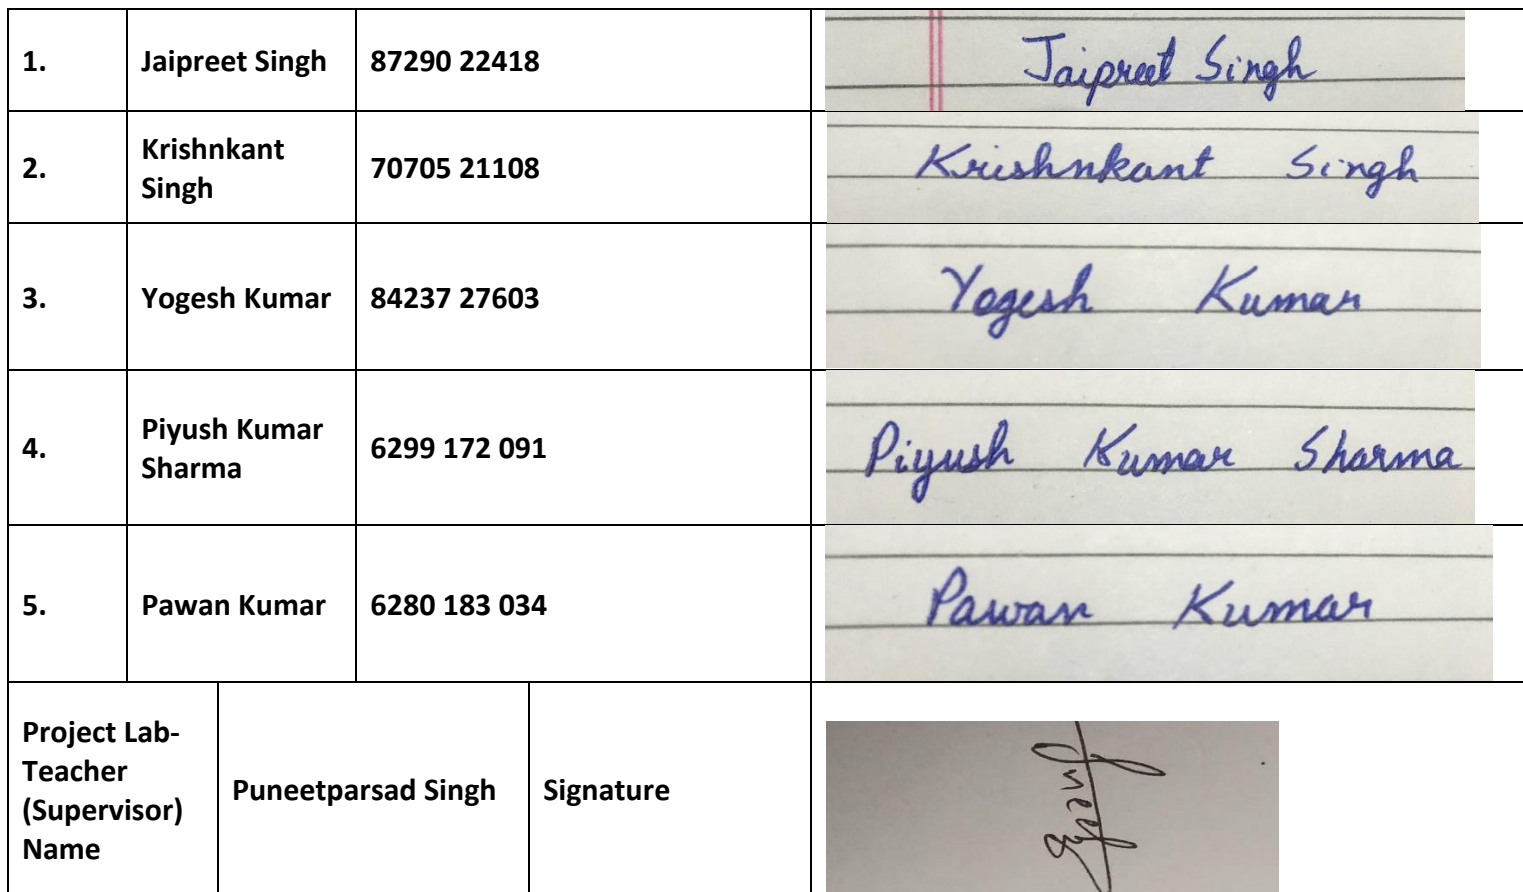 1. Jaipreet Singh 87290 22418 Jaipreet Singh
2. Krishnkant
Singh 70705 21108 Krishnkant Singh
3. Yogesh Kumar 84237 27603 Yogesh Kumar
4. Piyush Kumar
Sharma 6299 172 091 Piyush Kumar Sharma
5. Pawan Kumar 6280 183 034 Pawan Kumar
Project Lab-
Teacher
(Supervisor)
Name
Puneetparsad Singh
Signature